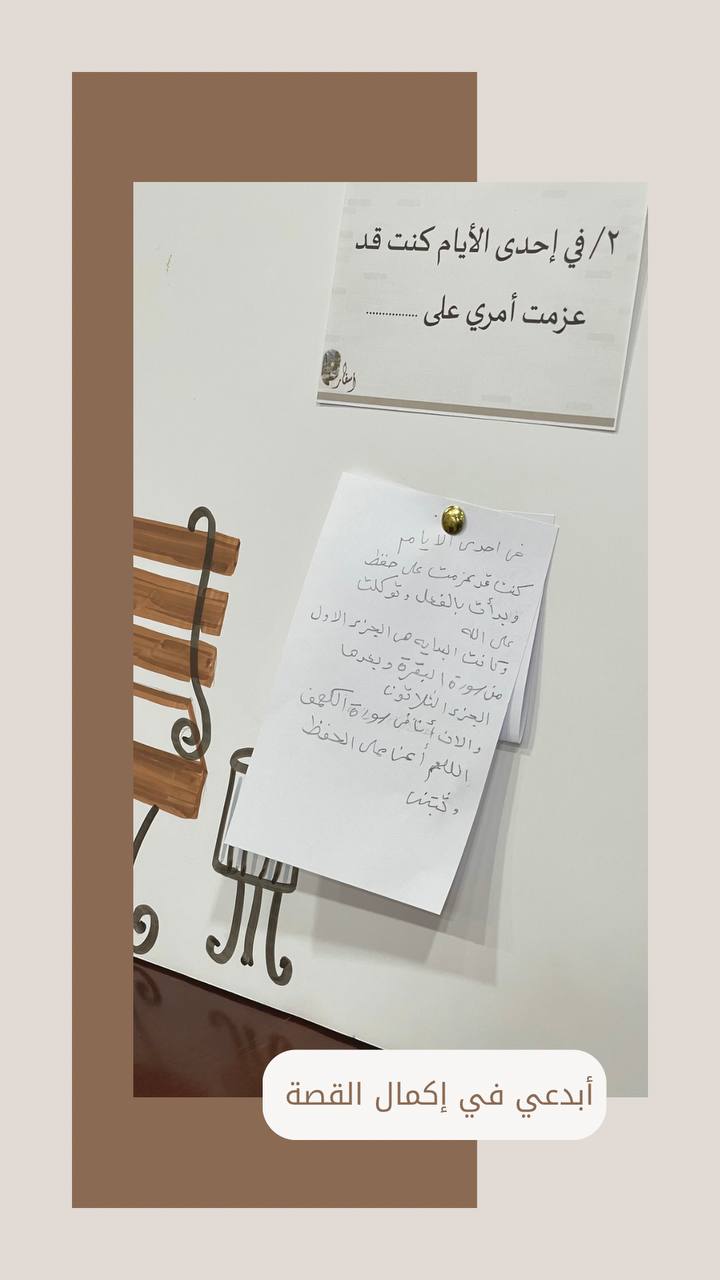 ٢/ في إحدى الأيام كنت قد
عزمت أمري على ................
أسفار
في احدى الايام
كنت قد عزمت على حفظ
وبدأت بالفعل وتوكلت
على الله
وكانت البدايه من الجزء الاول
من سورة البقرة وبعدها
الجزء الثلاثون
والان أنا في سورة الكهف
اللهم أعنا على الحفظ
وثبتنا
أبدعي في إكمال القصة